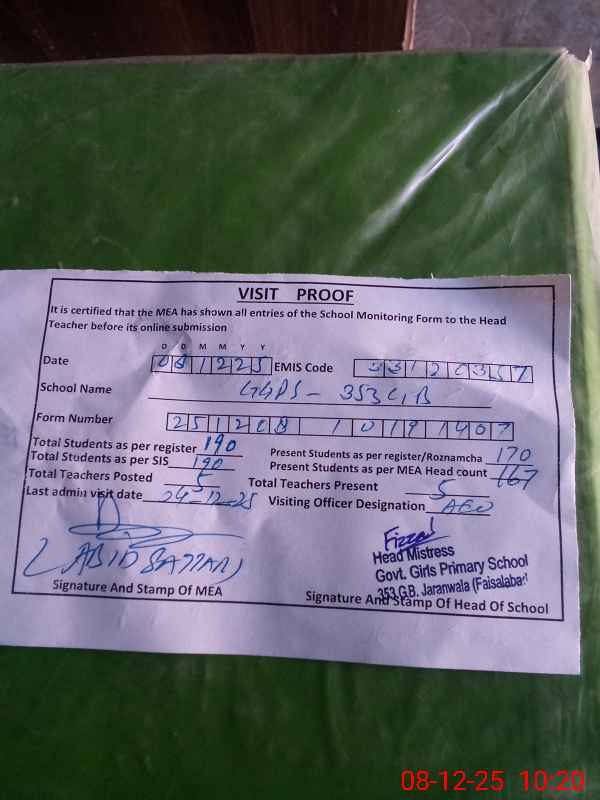 VISIT PROOF
It is certified that the MEA has shown all entries of the School Monitoring Form to the Head
Teacher before its online submission
D D M M Y Y
Date 081225 EMIS Code 33120357
School Name GGPS - 353 GB
Form Number 251208 10191407
Total Students as per register 190 Present Students as per register/Roznamcha 170
Total Students as per SIS 190 Present Students as per MEA Head count 167
Total Teachers Posted 5 Total Teachers Present 5
Last admin visit date 24-12-25 Visiting Officer Designation AEO
(ABID SATTAR) Fizza
Head Mistress
Govt. Girls Primary School
353 G.B. Jaranwala (Faisalabad
Signature And Stamp Of MEA Signature And Stamp Of Head Of School
08-12-25 10:20